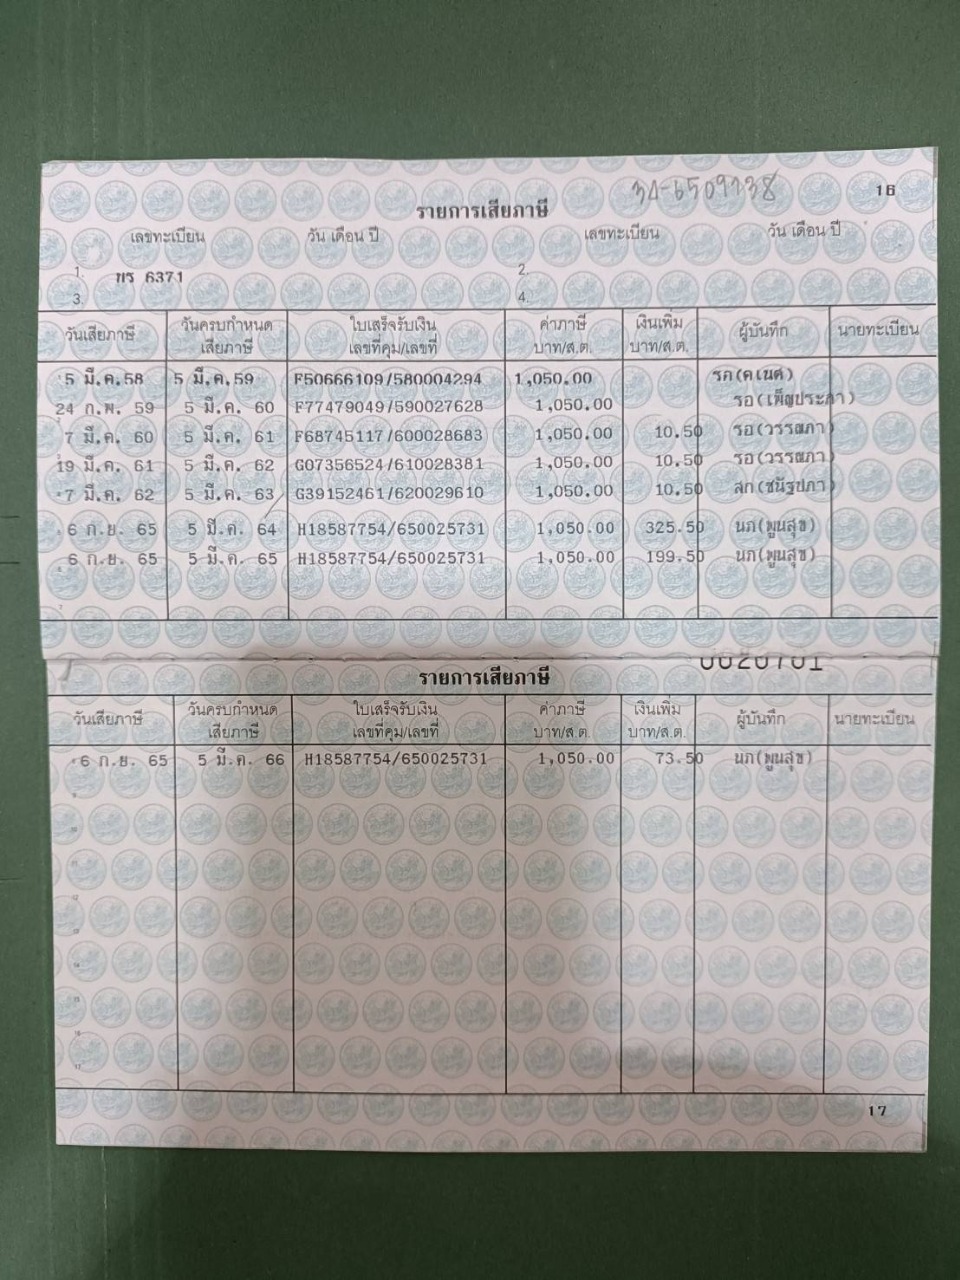 34-6509738 16
รายการเสียภาษี
เลขทะเบียน วัน เดือน ปี เลขทะเบียน วัน เดือน ปี
1. ทร 6371 2.
3. 4.
วันเสียภาษี วันครบกำหนดเสียภาษี ใบเสร็จรับเงิน เลขที่คุม/เลขที่ ค่าภาษี บาท/ส.ต. เงินเพิ่ม บาท/ส.ต. ผู้บันทึก นายทะเบียน
5 มี.ค.58 5 มี.ค.59 F50666109/580004294 1,050.00 รภ(คเนศ)
24 ก.พ. 59 5 มี.ค. 60 F77479049/590027628 1,050.00 รอ(เพ็ญประภา)
7 มี.ค. 60 5 มี.ค. 61 F68745117/600028683 1,050.00 10.50 รอ(วรรณภา)
19 มี.ค. 61 5 มี.ค. 62 G07356524/610028381 1,050.00 10.50 รอ(วรรณภา)
7 มี.ค. 62 5 มี.ค. 63 G39152461/620029610 1,050.00 10.50 สก(ชนัฐปภา)
6 ก.ย. 65 5 มี.ค. 64 H18587754/650025731 1,050.00 325.50 นภ(พูนสุข)
6 ก.ย. 65 5 มี.ค. 65 H18587754/650025731 1,050.00 199.50 นภ(พูนสุข)
7
0020701
รายการเสียภาษี
วันเสียภาษี วันครบกำหนดเสียภาษี ใบเสร็จรับเงิน เลขที่คุม/เลขที่ ค่าภาษี บาท/ส.ต. เงินเพิ่ม บาท/ส.ต. ผู้บันทึก นายทะเบียน
6 ก.ย. 65 5 มี.ค. 66 H18587754/650025731 1,050.00 73.50 นภ(พูนสุข)
9
10
11
12
13
14
15
16
17
17